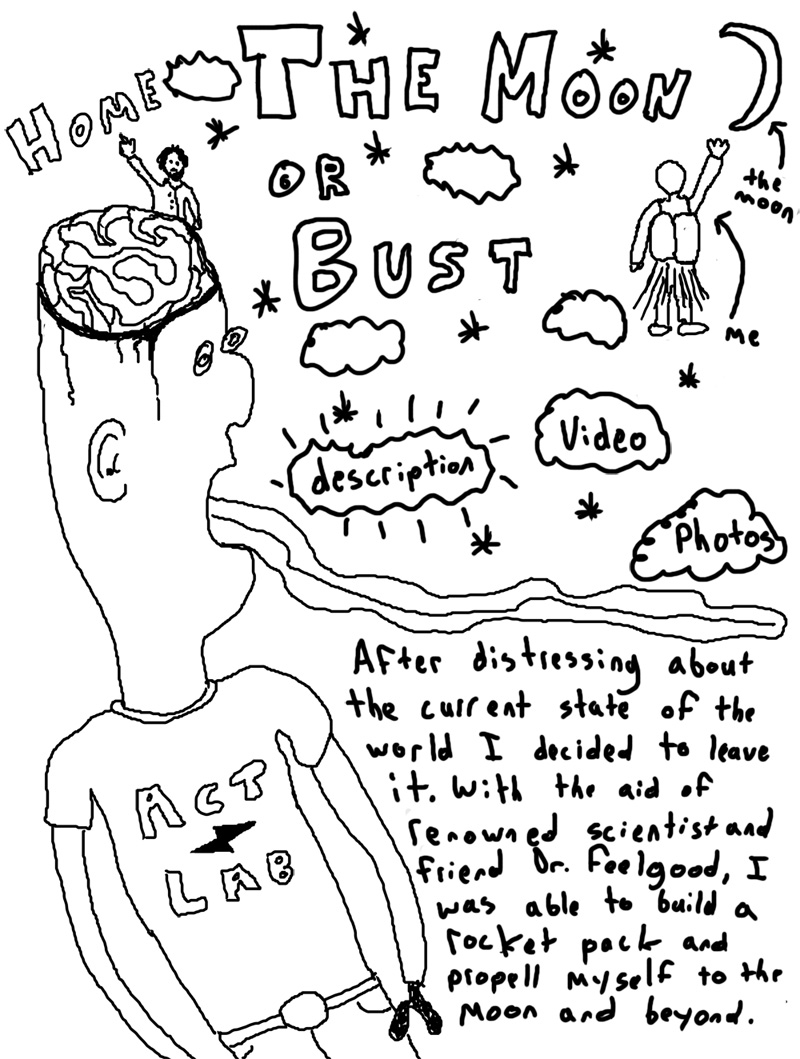 HOME
THE MOON
OR
BUST
the
moon
me
description
Video
Photos
ACT
LAB
After distressing about
the current state of the
world I decided to leave
it. With the aid of
renowned scientist and
friend Dr. Feelgood, I
was able to build a
rocket pack and
propell myself to the
Moon and beyond.